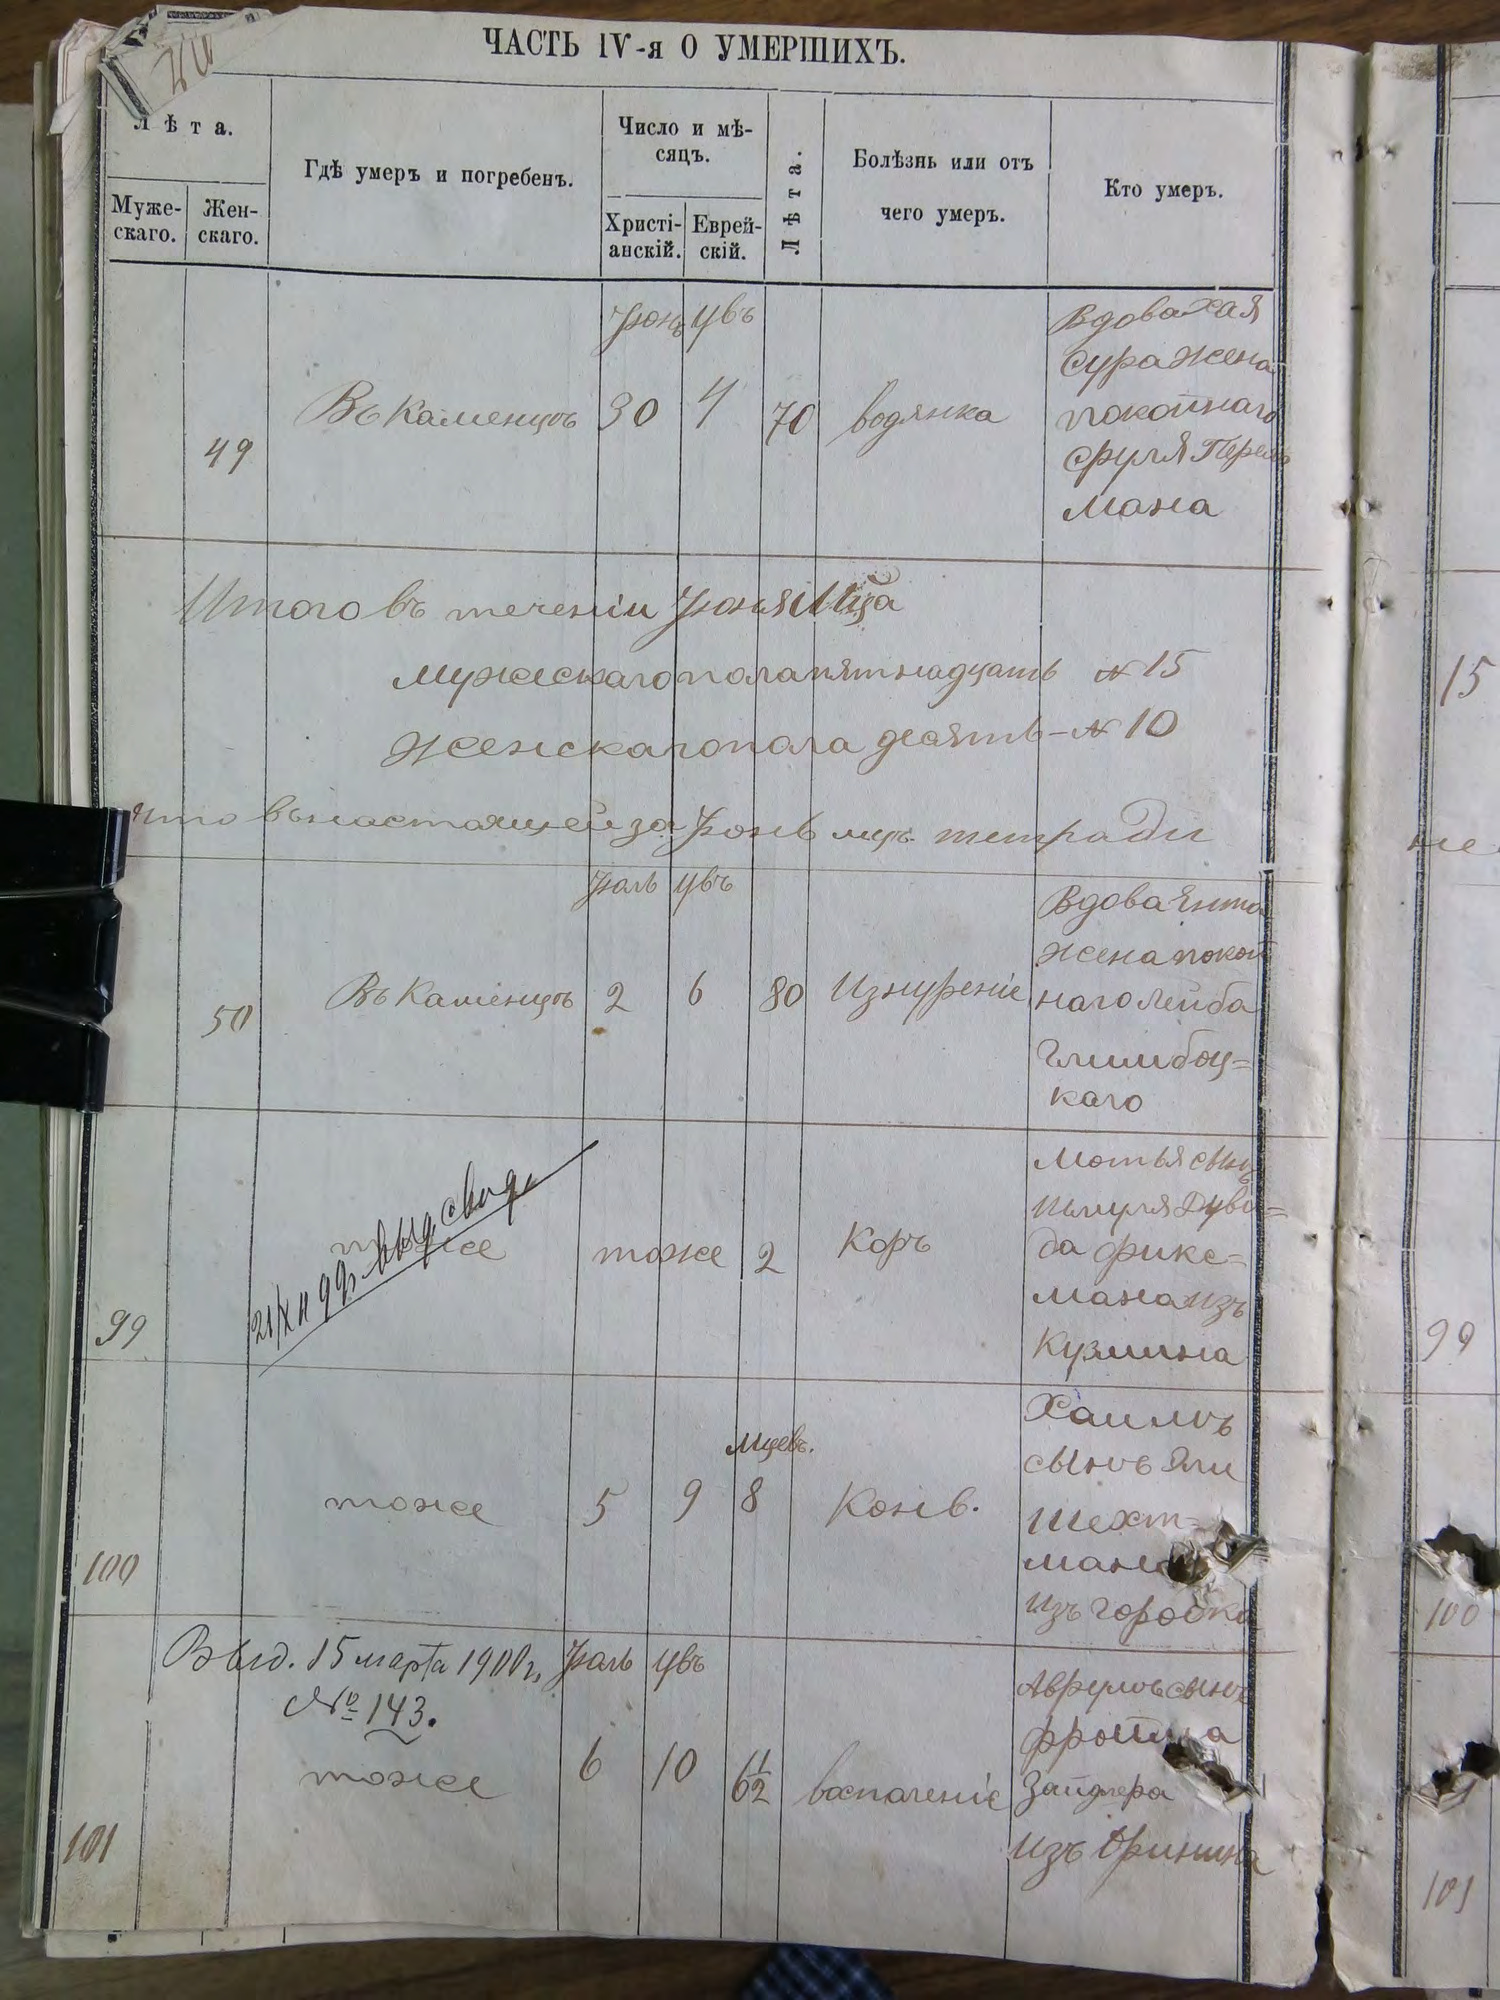 ЧАСТЬ IV-я О УМЕРШИХЪ.
Лѣта.
Муже-
скаго.
Жен-
скаго.
Гдѣ умеръ и погребенъ.
Число и мѣ-
сяцъ.
Христі-
анскій.
Еврей-
скій.
Лѣта.
Болѣзнь или отъ
чего умеръ.
Кто умеръ.
49
Въ Каменцѣ
Юнь
30
4
70
водянка
Вдова Хая
Сура жена
покойнаго
Сруля Перель
мана
Итого въ теченіи Юня Мца
мужескаго пола пятнадцать № 15
женскаго пола десять — № 10
что въ настоящей за Юнь мцъ тетради
50
Въ Каменцѣ
Юль
2
6
80
Изнуреніе
Вдова Ента
жена покой
наго Лейба
Глимбоц=
каго
99
тоже
тоже
2
Корь
Мотья сынъ
Шмуля Дуви=
да Фикс=
мана изъ
Кузмина
100
тоже
5
9
мцевъ.
8
Конв.
Хаимъ
сынъ Эли
Шехт=
мана
изъ Городка
101
Выд. 15 марта 1900 г.
№ 143.
тоже
Юль
6
10
6½
воспаленіе
Аврумъ сынъ
Зайдлера
изъ Оринина
15
99
100
101